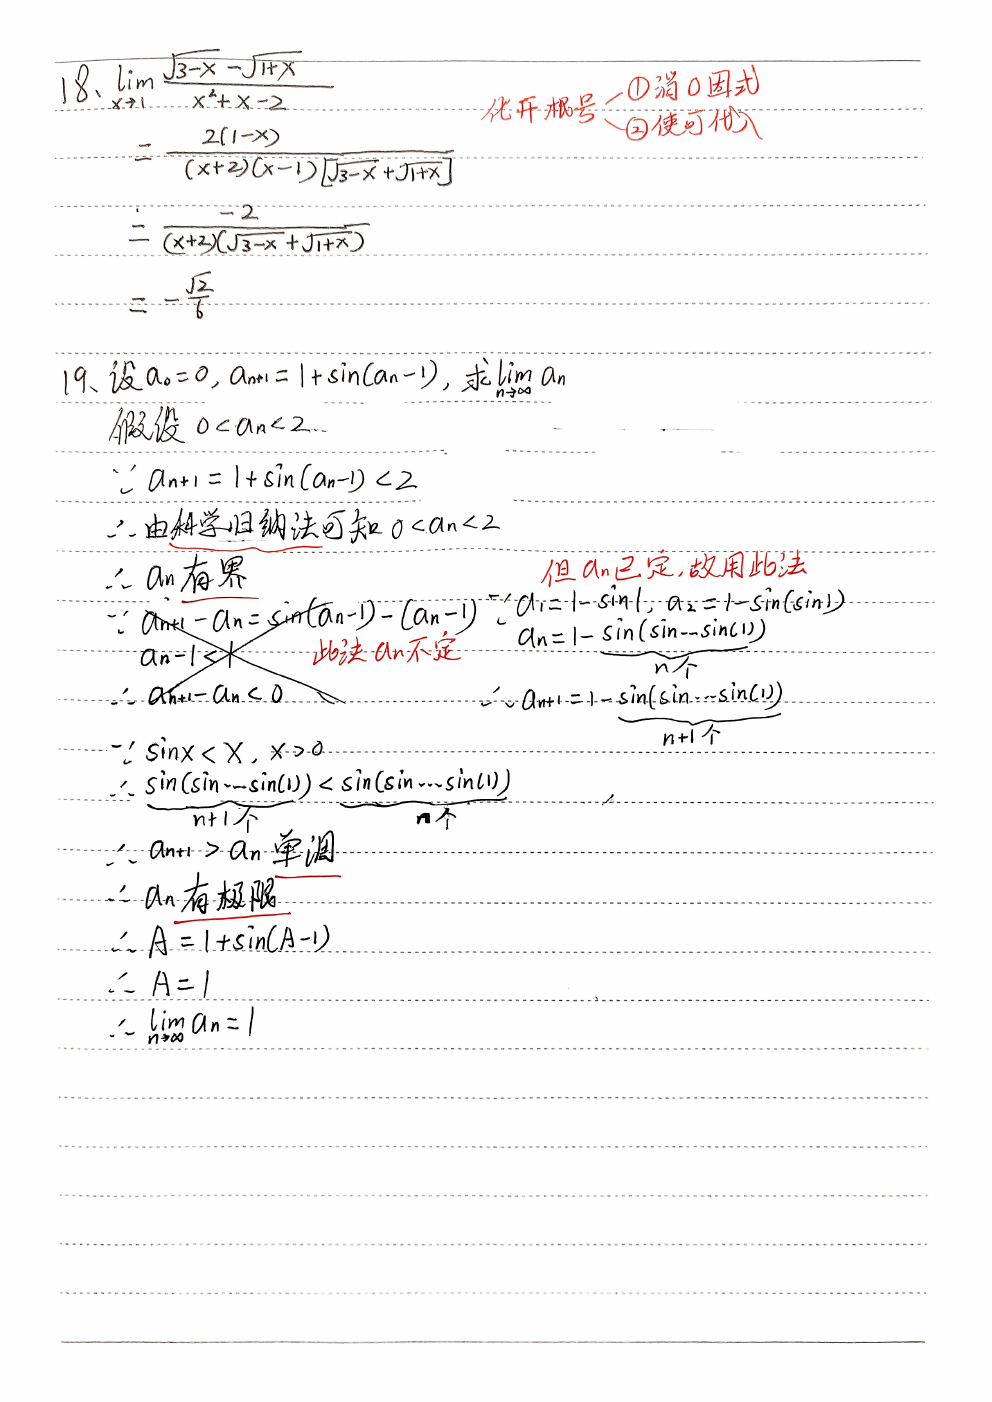 18、lim x→1 (√3-x - √1+x)/(x²+x-2)
化开根号 ①消0因式
②使可代入
= 2(1-x)/((x+2)(x-1)[√3-x+√1+x])
= -2/((x+2)(√3-x+√1+x))
= -√2/6
19、设a₀=0, aₙ₊₁=1+sin(aₙ-1), 求lim n→∞ aₙ
假设 0<aₙ<2
∵ aₙ₊₁=1+sin(aₙ-1)<2
∴ 由科学归纳法可知 0<aₙ<2
∴ aₙ有界
∵ aₙ₊₁-aₙ=sin(aₙ-1)-(aₙ-1)
aₙ-1<1
此法aₙ不定
∴ aₙ₊₁-aₙ<0
但aₙ已定,故用此法
∵ a₁=1-sin1, a₂=1-sin(sin1)
aₙ=1-sin(sin…sin(1))
n个
∴ aₙ₊₁=1-sin(sin…sin(1))
n+1个
∵ sinx<x, x>0
∴ sin(sin…sin(1))<sin(sin…sin(1))
n+1个 n个
∴ aₙ₊₁>aₙ 单调
∴ aₙ有极限
∴ A=1+sin(A-1)
∴ A=1
∴ lim n→∞ aₙ=1